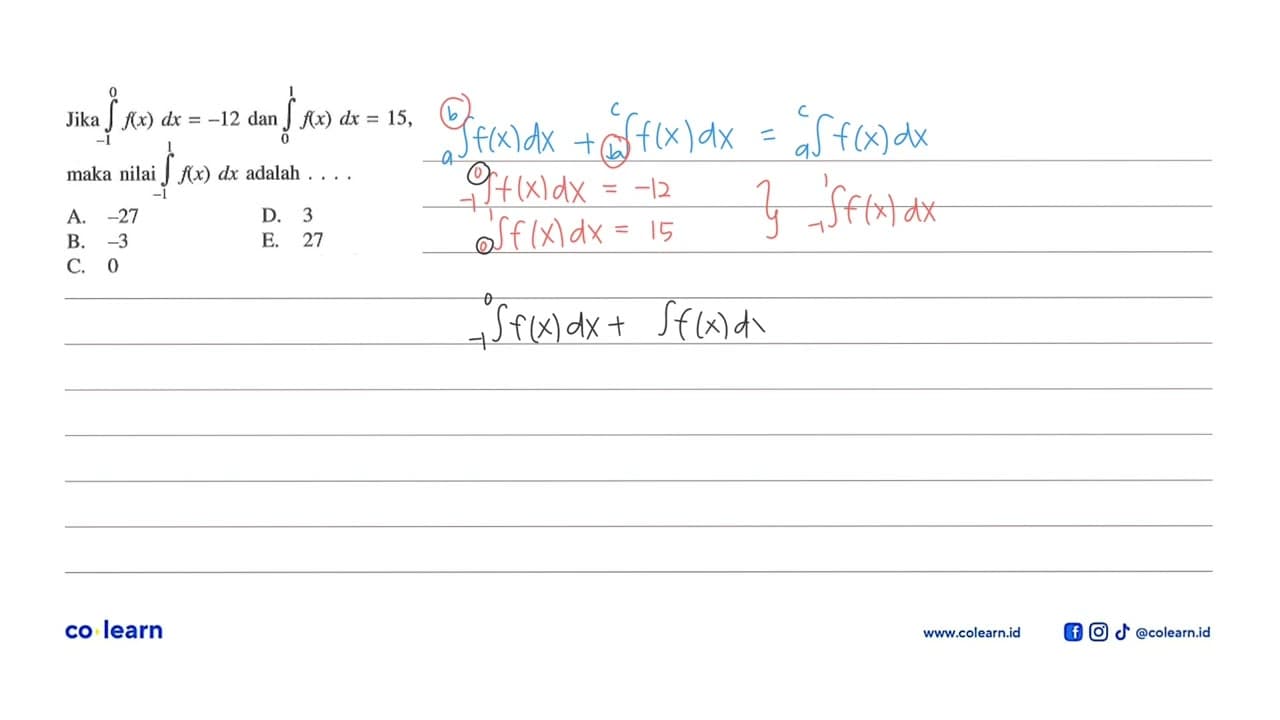 Jika ∫₋₁⁰ f(x) dx = –12 dan ∫₀¹ f(x) dx = 15,
maka nilai ∫₋₁¹ f(x) dx adalah . . . .
A. –27 D. 3
B. –3 E. 27
C. 0
ₐᵇ∫f(x)dx + ᵇᶜ∫f(x)dx = ₐᶜ∫f(x)dx
₋₁⁰∫f(x)dx = -12
₀¹∫f(x)dx = 15 } ₋₁¹∫f(x)dx
₋₁⁰∫f(x)dx + ∫f(x)d\
co learn
www.colearn.id
@colearn.id